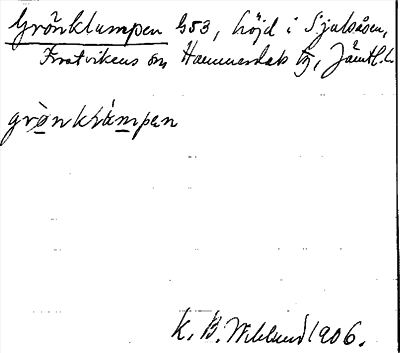 Grönklumpen G53, höjd i Sjulsåsen,
Frostvikens sn Hammerdals tg, Jämtl.l.
grönklumpen
K. B. Wiklund 1906.